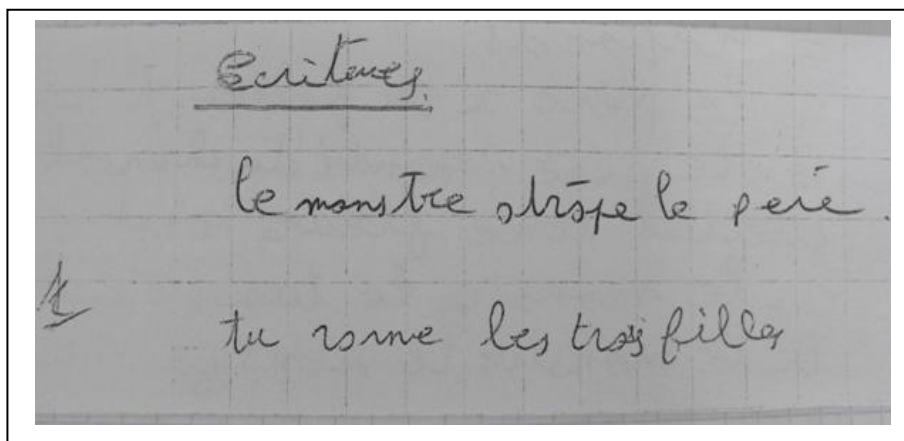 Ecritures.
le monstre atrape le peré.
tu rame les trois filles